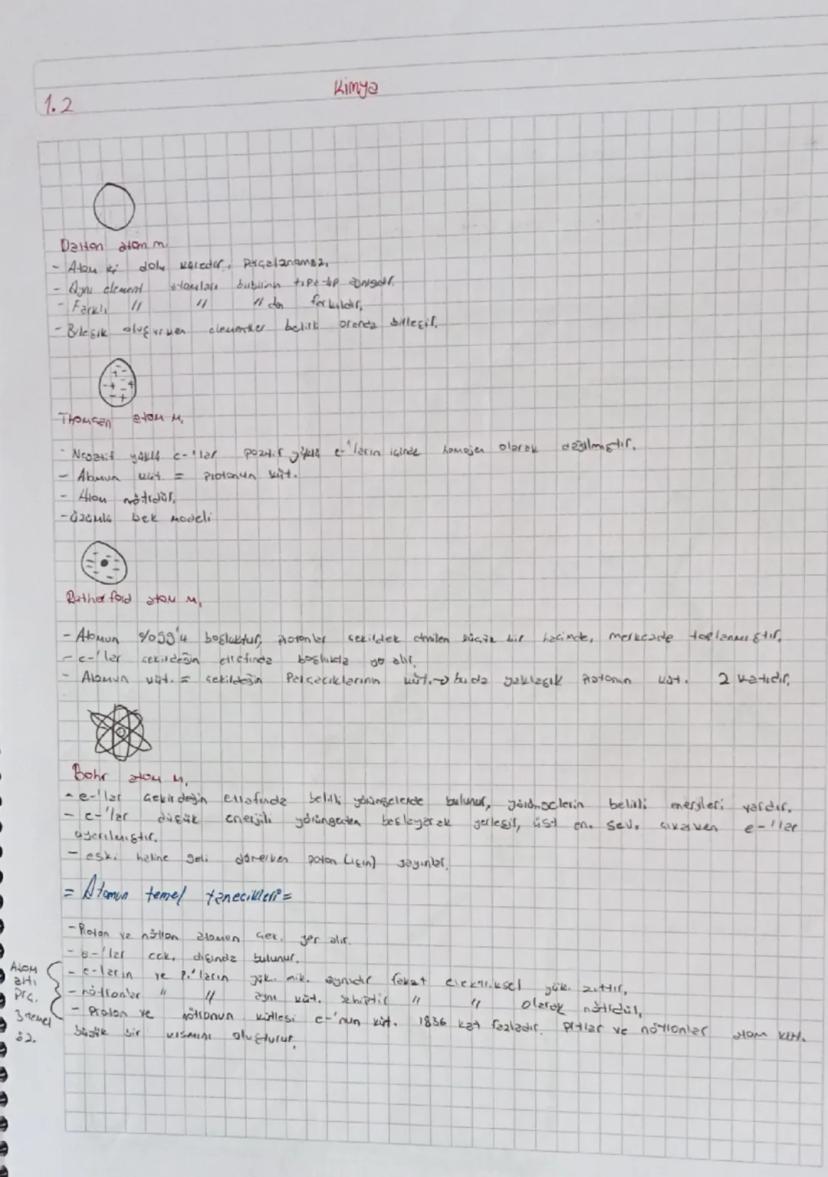 Kimya
1.2
Dalton atom m.
- Atom içi dolu küredir, parçalanamaz.
- Aynı element atomları birbirinin tıpatıp aynısıdır.
- Farklı " " " da farklıdır.
- Bileşik oluşurken elementler belirli oranda birleşir.
Thomson atom m.
- Negatif yüklü e-'lar pozitif yüklü e-'ların içinde homojen olarak dağılmıştır.
- Atomun küt = protonun küt.
- Atom nötrdür.
- üzümlü kek modeli
Rutherford atom m.
- Atomun %99'u boşluktur, protonlar çekirdek denilen küçük bir hacimde, merkezde toplanmıştır.
- e-'lar çekirdeğin etrafında boşlukta yer alır.
- Atomun küt. = çekirdeğin parçacıklarının küt. → bu da yaklaşık protonun küt. 2 katıdır.
Bohr atom m.
- e-'lar çekirdeğin etrafında belirli yörüngelerde bulunur, yörüngelerin belirli enerjileri vardır.
- e-'lar düşük enerjili yörüngeden başlayarak yerleşir, üst en. sev. çıkarken e-'lar
uyarılmıştır.
- eski haline geri dönerken foton (ışın) yayınlar.
= Atomun temel tanecikleri =
- Proton ve nötron atomun çek. yer alır.
- e-'lar çek. dışında bulunur.
- e-ların ve p.'ların yük. mik. aynıdır fakat elektriksel yük. zıttır.
- nötronlar " " aynı küt. sahiptir " " olarak nötrdür.
- Proton ve nötronun kütlesi e-'nun küt. 1836 kat fazladır. p+lar ve nötronlar atom küt.
büyük bir kısmını oluşturur.
Atom
altı
prç.
3 temel
öz.